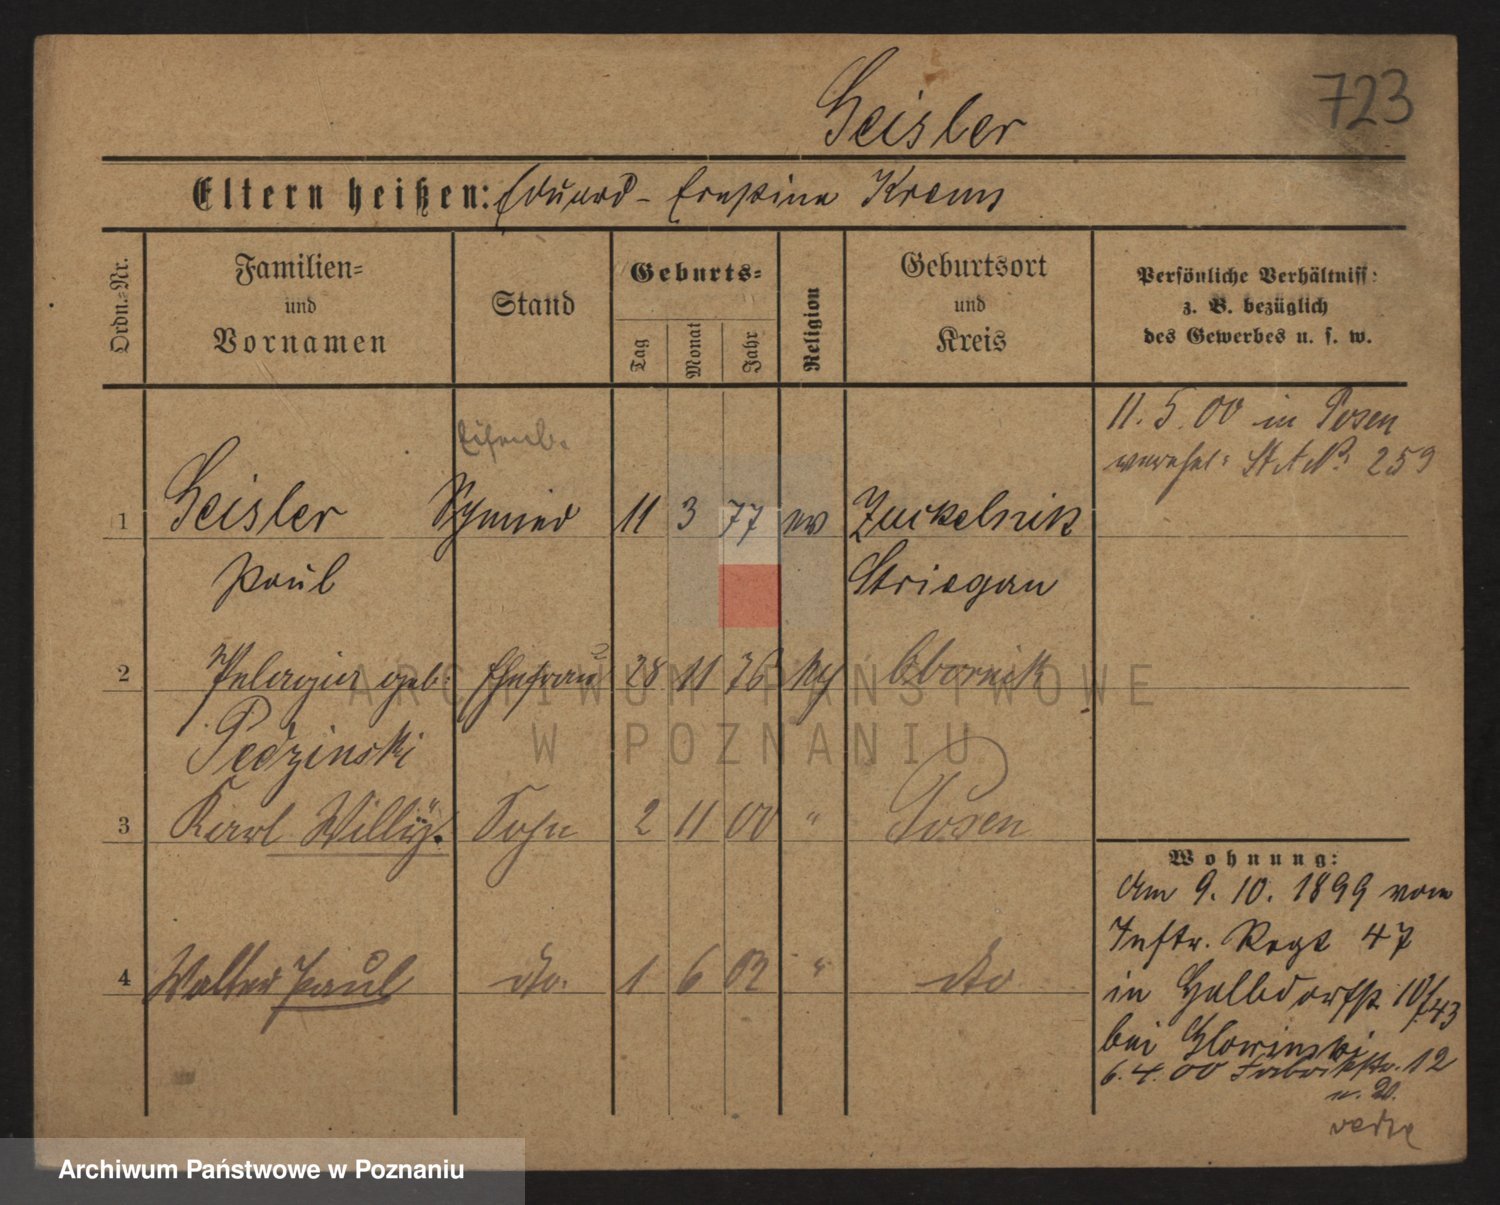 723
Geisler
Eltern heißen: Eduard - Ernstine Krems
Ordn.-Nr.
Familien-
und
Vornamen
Stand
Geburts-
Tag
Monat
Jahr
Religion
Geburtsort
und
Kreis
Persönliche Verhältniss:
z. B. bezüglich
des Gewerbes u. s. w.
11. 5. 00 in Posen
verehel: St A No. 259
Eisenb.
1 Geisler Schmied 11 3 77 ev Zuckelnik
Paul Striegau
2 Pelagia geb. Ehefrau 28 11 76 kth Obornik
Pedzinski
3 Karl Willy. Sohn 2 11 00 " Posen
4 Walter Paul do. 1 6 02 " dto
Wohnung:
Am 9. 10. 1899 vom
Inftr. Regt 47
in Halbdorfstr 10/43
bei Glowinski
6. 4. 00 Fabrikstr. 12
n. 20.
ARCHIWUM PAŃSTWOWE
W POZNANIU
Archiwum Państwowe w Poznaniu